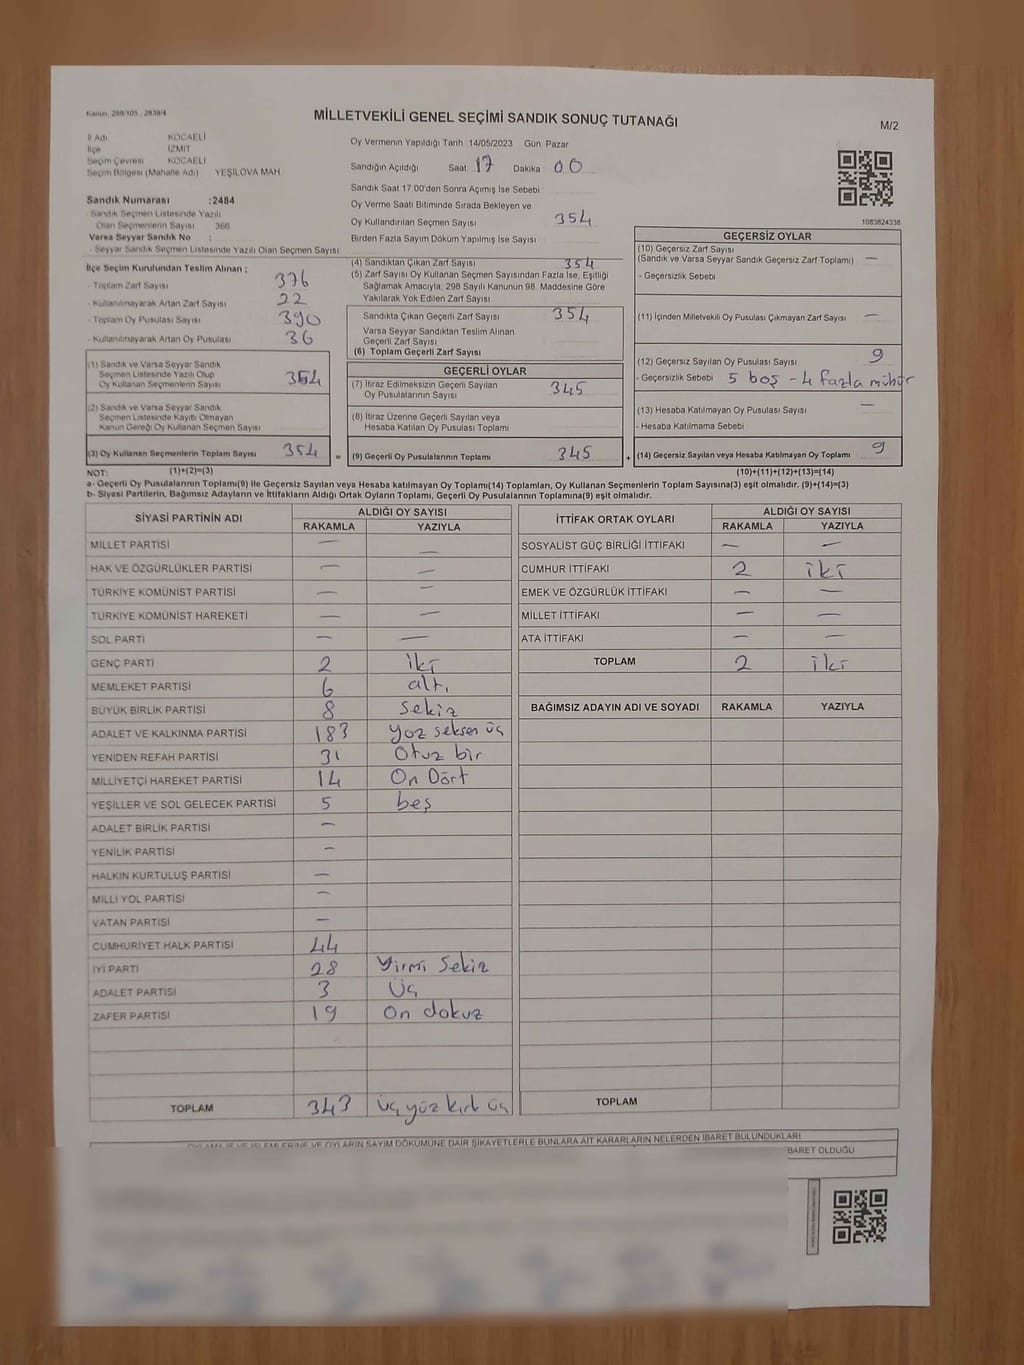 Kanun, 298/105 , 2839/4
MİLLETVEKİLİ GENEL SEÇİMİ SANDIK SONUÇ TUTANAĞI
M/2
İl Adı KOCAELİ
İlçe İZMİT
Seçim Çevresi KOCAELİ
Seçim Bölgesi (Mahalle Adı) YEŞİLOVA MAH.
Sandık Numarası :2484
- Sandık Seçmen Listesinde Yazılı
Olan Seçmenlerin Sayısı 366
Varsa Seyyar Sandık No :
- Seyyar Sandık Seçmen Listesinde Yazılı Olan Seçmen Sayısı
İlçe Seçim Kurulundan Teslim Alınan ;
- Toplam Zarf Sayısı 376
- Kullanılmayarak Artan Zarf Sayısı 22
- Toplam Oy Pusulası Sayısı 390
- Kullanılmayarak Artan Oy Pusulası 36
(1) Sandık ve Varsa Seyyar Sandık
Seçmen Listesinde Yazılı Olup
Oy Kullanan Seçmenlerin Sayısı 354
(2) Sandık ve Varsa Seyyar Sandık
Seçmen Listesinde Kayıtlı Olmayan
Kanun Gereği Oy Kullanan Seçmen Sayısı
(3) Oy Kullanan Seçmenlerin Toplam Sayısı 354
Oy Vermenin Yapıldığı Tarih 14/05/2023 Gün Pazar
Sandığın Açıldığı Saat 17 Dakika 00
Sandık Saat 17.00'den Sonra Açımış İse Sebebi
Oy Verme Saati Bitiminde Sırada Bekleyen ve
Oy Kullandırılan Seçmen Sayısı 354
Birden Fazla Sayım Döküm Yapılmış İse Sayısı
(4) Sandıktan Çıkan Zarf Sayısı 354
(5) Zarf Sayısı Oy Kullanan Seçmen Sayısından Fazla İse, Eşitliği
Sağlamak Amacıyla, 298 Sayılı Kanunun 98. Maddesine Göre
Yakılarak Yok Edilen Zarf Sayısı
Sandıkta Çıkan Geçerli Zarf Sayısı 354
Varsa Seyyar Sandıktan Teslim Alınan
Geçerli Zarf Sayısı
(6) Toplam Geçerli Zarf Sayısı
GEÇERLİ OYLAR
(7) İtiraz Edilmeksizin Geçerli Sayılan
Oy Pusulalarının Sayısı 345
(8) İtiraz Üzerine Geçerli Sayılan veya
Hesaba Katılan Oy Pusulası Toplamı
= (9) Geçerli Oy Pusulalarının Toplamı 345 +
1083824338
GEÇERSİZ OYLAR
(10) Geçersiz Zarf Sayısı
(Sandık ve Varsa Seyyar Sandık Geçersiz Zarf Toplamı) —
- Geçersizlik Sebebi
(11) İçinden Milletvekili Oy Pusulası Çıkmayan Zarf Sayısı —
(12) Geçersiz Sayılan Oy Pusulası Sayısı 9
- Geçersizlik Sebebi 5 boş - 4 fazla mühür
(13) Hesaba Katılmayan Oy Pusulası Sayısı —
- Hesaba Katılmama Sebebi
(14) Geçersiz Sayılan veya Hesaba Katılmayan Oy Toplamı 9
NOT: (1)+(2)=(3) (10)+(11)+(12)+(13)=(14)
a- Geçerli Oy Pusulasının Toplamı(9) ile Geçersiz Sayılan veya Hesaba katılmayan Oy Toplamı(14) Toplamları, Oy Kullanan Seçmenlerin Toplam Sayısına(3) eşit olmalıdır. (9)+(14)=(3)
b- Siyasi Partilerin, Bağımsız Adayların ve İttifakların Aldığı Ortak Oyların Toplamı, Geçerli Oy Pusulalarının Toplamına(9) eşit olmalıdır.
SİYASİ PARTİNİN ADI ALDIĞI OY SAYISI
RAKAMLA YAZIYLA
MİLLET PARTİSİ — —
HAK VE ÖZGÜRLÜKLER PARTİSİ — —
TÜRKİYE KOMÜNİST PARTİSİ — —
TÜRKİYE KOMÜNİST HAREKETİ — —
SOL PARTİ — —
GENÇ PARTİ 2 iki
MEMLEKET PARTİSİ 6 altı
BÜYÜK BİRLİK PARTİSİ 8 sekiz
ADALET VE KALKINMA PARTİSİ 183 yüz seksen üç
YENİDEN REFAH PARTİSİ 31 Otuz bir
MİLLİYETÇİ HAREKET PARTİSİ 14 On Dört
YEŞİLLER VE SOL GELECEK PARTİSİ 5 beş
ADALET BİRLİK PARTİSİ —
YENİLİK PARTİSİ —
HALKIN KURTULUŞ PARTİSİ —
MİLLİ YOL PARTİSİ —
VATAN PARTİSİ —
CUMHURİYET HALK PARTİSİ 44
İYİ PARTİ 28 Yirmi Sekiz
ADALET PARTİSİ 3 Üç
ZAFER PARTİSİ 19 On dokuz
TOPLAM 343 üç yüz kırk üç
İTTİFAK ORTAK OYLARI ALDIĞI OY SAYISI
RAKAMLA YAZIYLA
SOSYALİST GÜÇ BİRLİĞİ İTTİFAKI — —
CUMHUR İTTİFAKI 2 iki
EMEK VE ÖZGÜRLÜK İTTİFAKI — —
MİLLET İTTİFAKI — —
ATA İTTİFAKI — —
TOPLAM 2 iki
BAĞIMSIZ ADAYIN ADI VE SOYADI RAKAMLA YAZIYLA
TOPLAM
VE OYLARIN SAYIM DÖKÜMÜNE DAİR ŞİKAYETLERLE BUNLARA AİT KARARLARIN NELERDEN İBARET BULUNDUKLARI
BARET OLDUĞU